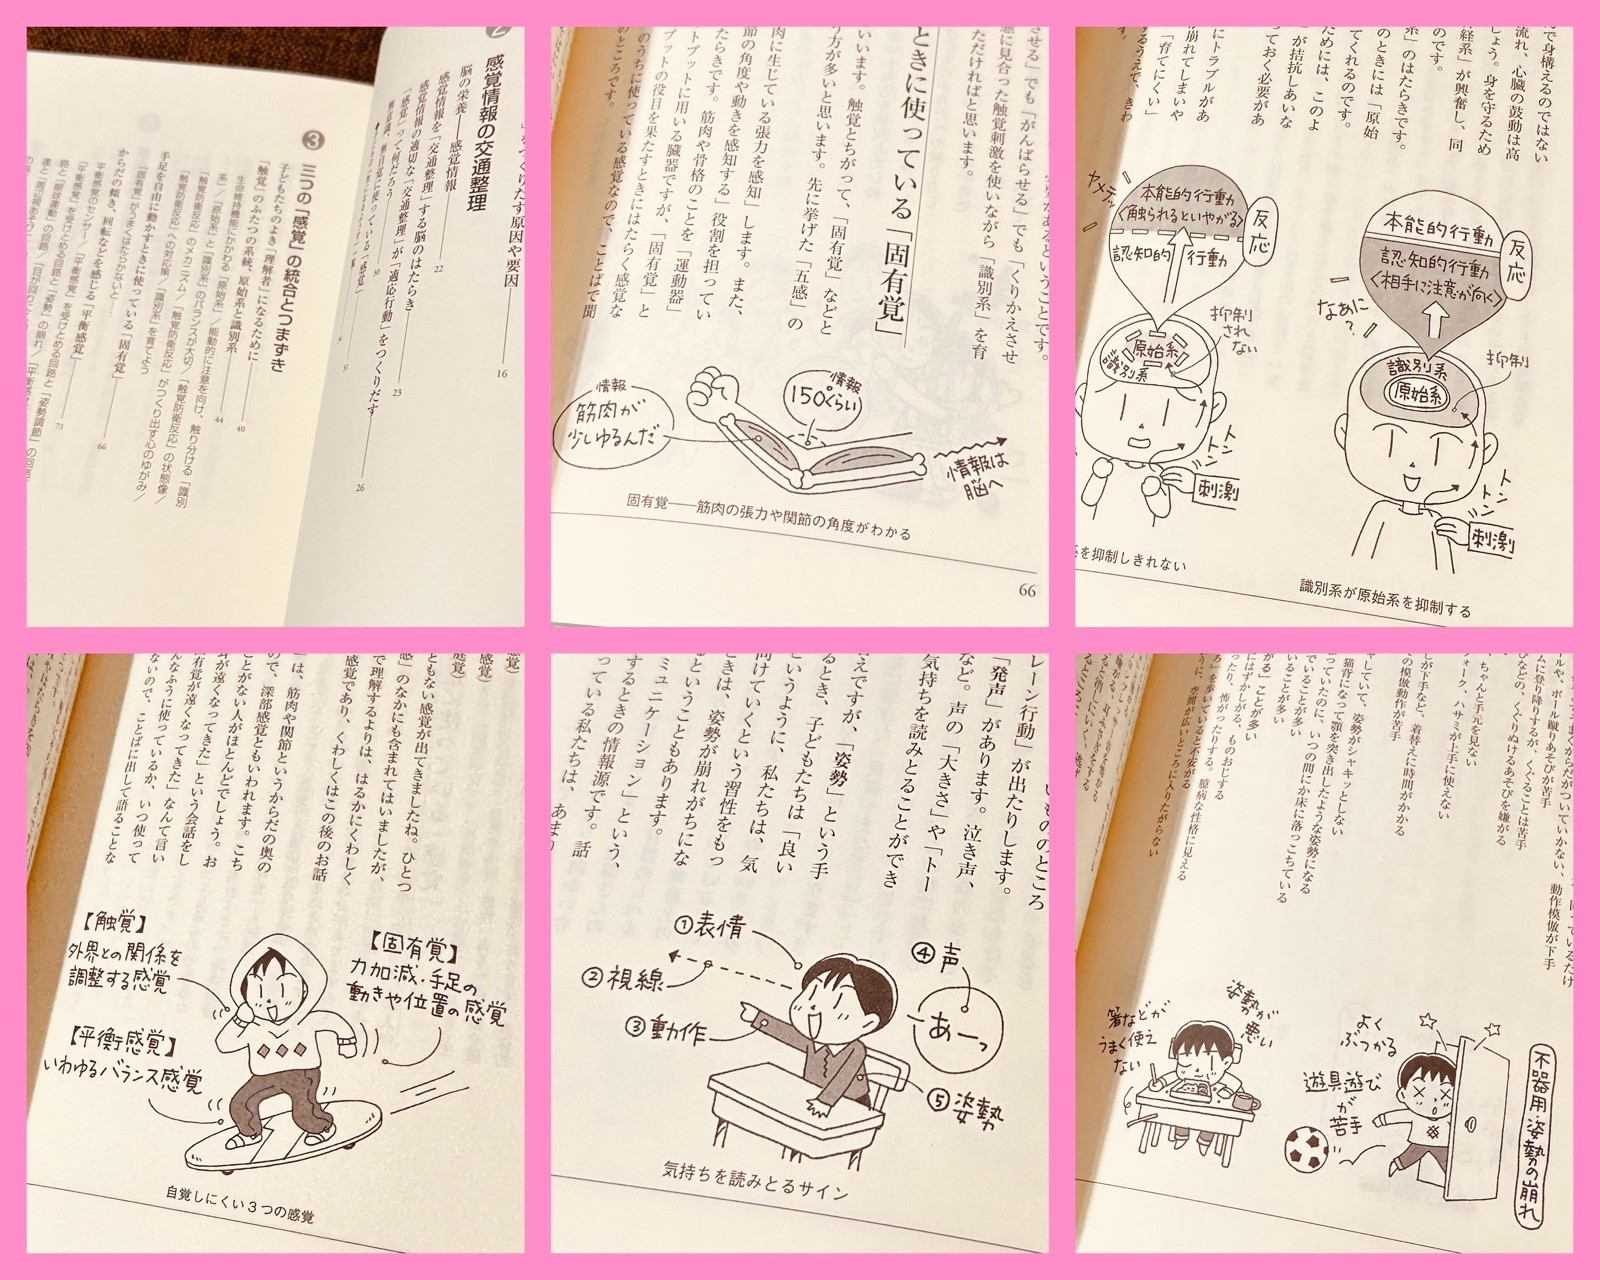 」をつくりだす原因や要因 16
2 感覚情報の交通整理
脳の栄養――感覚情報 22
感覚情報を「交通整理」する脳のはたらき 23
感覚情報の適切な「交通整理」が「適応行動」をつくりだす 26
「感覚」って何だろう 30
無意識、無自覚に使っている「感覚」
3 三つの「感覚」の統合とつまずき
子どもたちのよき「理解者」になるために 40
「触覚」のふたつの系統、原始系と識別系 44
生命維持機能にかかわる「原始系」／能動的に注意を向け、触り分ける「識別
系」／「原始系」と「識別系」のバランスが大切／「触覚防衛反応」の状態像／
「触覚防衛反応」のメカニズム／「触覚防衛反応」がつくり出す心のゆがみ／
「触覚防衛反応」への対応策／「識別系」を育てよう
手足を自由に動かすときに使っている「固有覚」 66
「固有覚」がうまくはたらかないと……
からだの傾き、回転などを感じる「平衡感覚」 71
平衡感覚のセンサー／「平衡感覚」を受けとめる回路と「姿勢調節」の回路
「平衡感覚」を受けとめる回路と「姿勢」の崩れ／
させる」でも「がんばらせる」でも「くりかえさせ
態に見合った触覚刺激を使いながら「識別系」を育
ただければと思います。
ときに使っている「固有覚」
いいます。触覚とちがって、「固有覚」などと
う方が多いと思います。先に挙げた「五感」の
肉に生じている張力を感知」します。また、
節の角度や動きを感知する」役割を担ってい
たらきです。筋肉や骨格のことを「運動器」
トプットに用いる臓器ですが、「固有覚」と
プットの役目を果たすときにはたらく感覚な
のうちに使っている感覚なので、ことばで聞
のところです。
情報
筋肉が
少しゆるんだ
情報
150°くらい
情報は
脳へ
固有覚――筋肉の張力や関節の角度がわかる
66
で身構えるのではない
しょう。身を守るため
流れ、心臓の鼓動は高
経系」が興奮し、同
のです。
系」のはたらきです。
のときには「原始
てくれるのです。
ためには、このよ
が拮抗しあいな
ておく必要があ
にトラブルがあ
崩れてしまいや
「育てにくい」
するうえで、きわ
ヤメテッ
本能的行動
〈触られるといやがる〉
認知的行動
反応
抑制
され
ない
原始系
識別系
トントン
刺激
を抑制しきれない
本能的行動
認知的行動
〈相手に注意が向く〉
反応
なあに?
抑制
識別系
原始系
トントン
刺激
識別系が原始系を抑制する
ともない感覚が出てきましたね。ひとつ
感」のなかにも含まれてはいましたが、
で理解するよりは、はるかにくわしく
感覚であり、くわしくはこの後のお話
」は、筋肉や関節というからだの奥の
ので、深部感覚ともいわれます。こち
ことがない人がほとんどでしょう。お
が遠くなってきた」という会話をし
有覚が遠くなってきた」なんて言い
んなふうに使っているか、いつ使って
ないので、ことばに出して語ることな
【触覚】
外界との関係を
調整する感覚
【固有覚】
力加減・手足の
動きや位置の感覚
【平衡感覚】
いわゆるバランス感覚
自覚しにくい3つの感覚
レーン行動」が出たりします。
「発声」があります。泣き声、
など。声の「大きさ」や「トー
気持ちを読みとることができ
えですが、「姿勢」という手
るとき、子どもたちは「良い
というように、私たちは、気
向けていくという習性をもっ
ときは、姿勢が崩れがちにな
ということもあります。
ミュニケーション」という、
するときの情報源です。話
っている私たちは、あまり
①表情
②視線
③動作
④声
あーっ
⑤姿勢
気持ちを読みとるサイン
くからだがついていかない、動作模倣が下手
ールや、ボール蹴りあそびが苦手
ムに登り降りするが、くぐることは苦手
びなどの、くぐりぬけるあそびを嫌がる
、ちゃんと手元を見ない
フォーク、ハサミが上手に使えない
しが下手など、着替えに時間がかかる
の模倣動作が苦手
していて、姿勢がシャキッとしない
猫背になって顎を突き出したような姿勢になる
っていたのに、いつの間にか床に落っこちている
でいることが多い
いることが多い
がる」ことが多い
にはずかしがる、ものおじする
ったり、怖がったりする。臆病な性格に見える
」を歩いていると不安がる
うに、空間が広いところに入りたがらない
箸などが
うまく使え
ない
姿勢が
悪い
よく
ぶつかる
遊具遊び
が
苦手
不器用・姿勢の崩れ